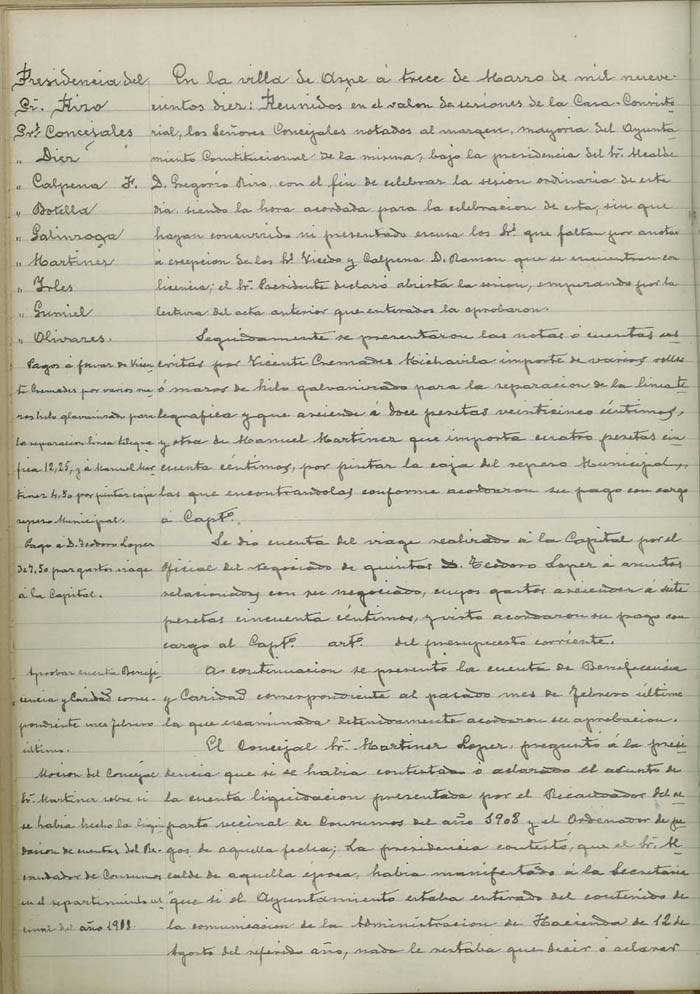 Presidencia del
Sr. Rizo
Sres. Concejales
" Diez
" Calpena F.
" Botella
" Galinsoga
" Martinez
" Irles
" Gumiel
" Olivares.
En la villa de Aspe á trece de Marzo de mil nueve-
cientos diez: Reunidos en el salon de sesiones de la Casa-Consisto
rial, los Señores Concejales notados al margen, mayoria del Ayunta-
miento Constitucional de la misma, bajo la presidencia del Sr. Alcalde
D. Gregorio Rizo, con el fin de celebrar la sesion ordinaria de este
dia, siendo la hora acordada para la celebracion de esta, sin que
hayan concurrido ni presentado escusa los Sres. que faltan por anotar
á escepcion de los Sres. Vicedo y Calpena D. Ramon que se encuentran con
licencia; el Sr. Presidente declaró abierta la sesion, empezando por la
lectura del acta anterior que enterados la aprobaron.
Pagos á favor de Vicen
te Cremades por varios ma
zos hilo galvanizado para
la reparacion linea telegra
fica 12,25, y á Manuel Mar
tinez 4,50 por pintar caja
repeso Municipal.
Seguidamente se presentaron las notas ó cuentas sus
critas por Vicente Cremades Michavila importe de varios rollos
ó mazos de hilo galvanizado para la reparacion de la linea te
legrafica y que asciende á doce pesetas veinticinco céntimos,
y otra de Manuel Martinez que importa cuatro pesetas cin
cuenta céntimos, por pintar la caja del repeso Municipal,
las que encontrandolas conforme acordaron su pago con cargo
á Capto.
Pago a D. Teodoro Lopez
de 7,50 por gastos viage
á la Capital.
Se dio cuenta del viage realizado á la Capital por el
Oficial del negociado de quintas D. Teodoro Lopez á asuntos
relacionados con su negociado, cuyos gastos ascienden á siete
pesetas cincuenta céntimos, y visto acordaron su pago con
cargo al Capto. arto. del presupuesto corriente.
Aprobar cuenta Benefi
cencia y Caridad corres-
pondiente mes febrero
último.
A continuacion se presentó la cuenta de Beneficencia
y Caridad correspondiente al pasado mes de Febrero último
la que examinada detenidamente acordaron su aprobacion.
Mocion del Concejal
Sr. Martinez sobre si
se habia hecho la liqui
dacion de cuentas del Re-
caudador de Consumos
en el repartimiento ve
cinal del año 1908.
El Concejal Sr. Martinez Lopez, preguntó á la presi
dencia que si se habia contestado ó aclarado el asunto de
la cuenta liquidacion presentada por el Recaudador del re
parto vecinal de Consumos del año 1908 y el Ordenador de pa
gos, de aquella fecha; La presidencia contestó, que el Sr. Al
calde de aquella época, habia manifestado á la Secretaria
que si el Ayuntamiento estaba enterado del contenido de
la comunicacion de la Administracion de Hacienda de 12 de
Agosto del referido año, nada le restaba que decir ó aclarar